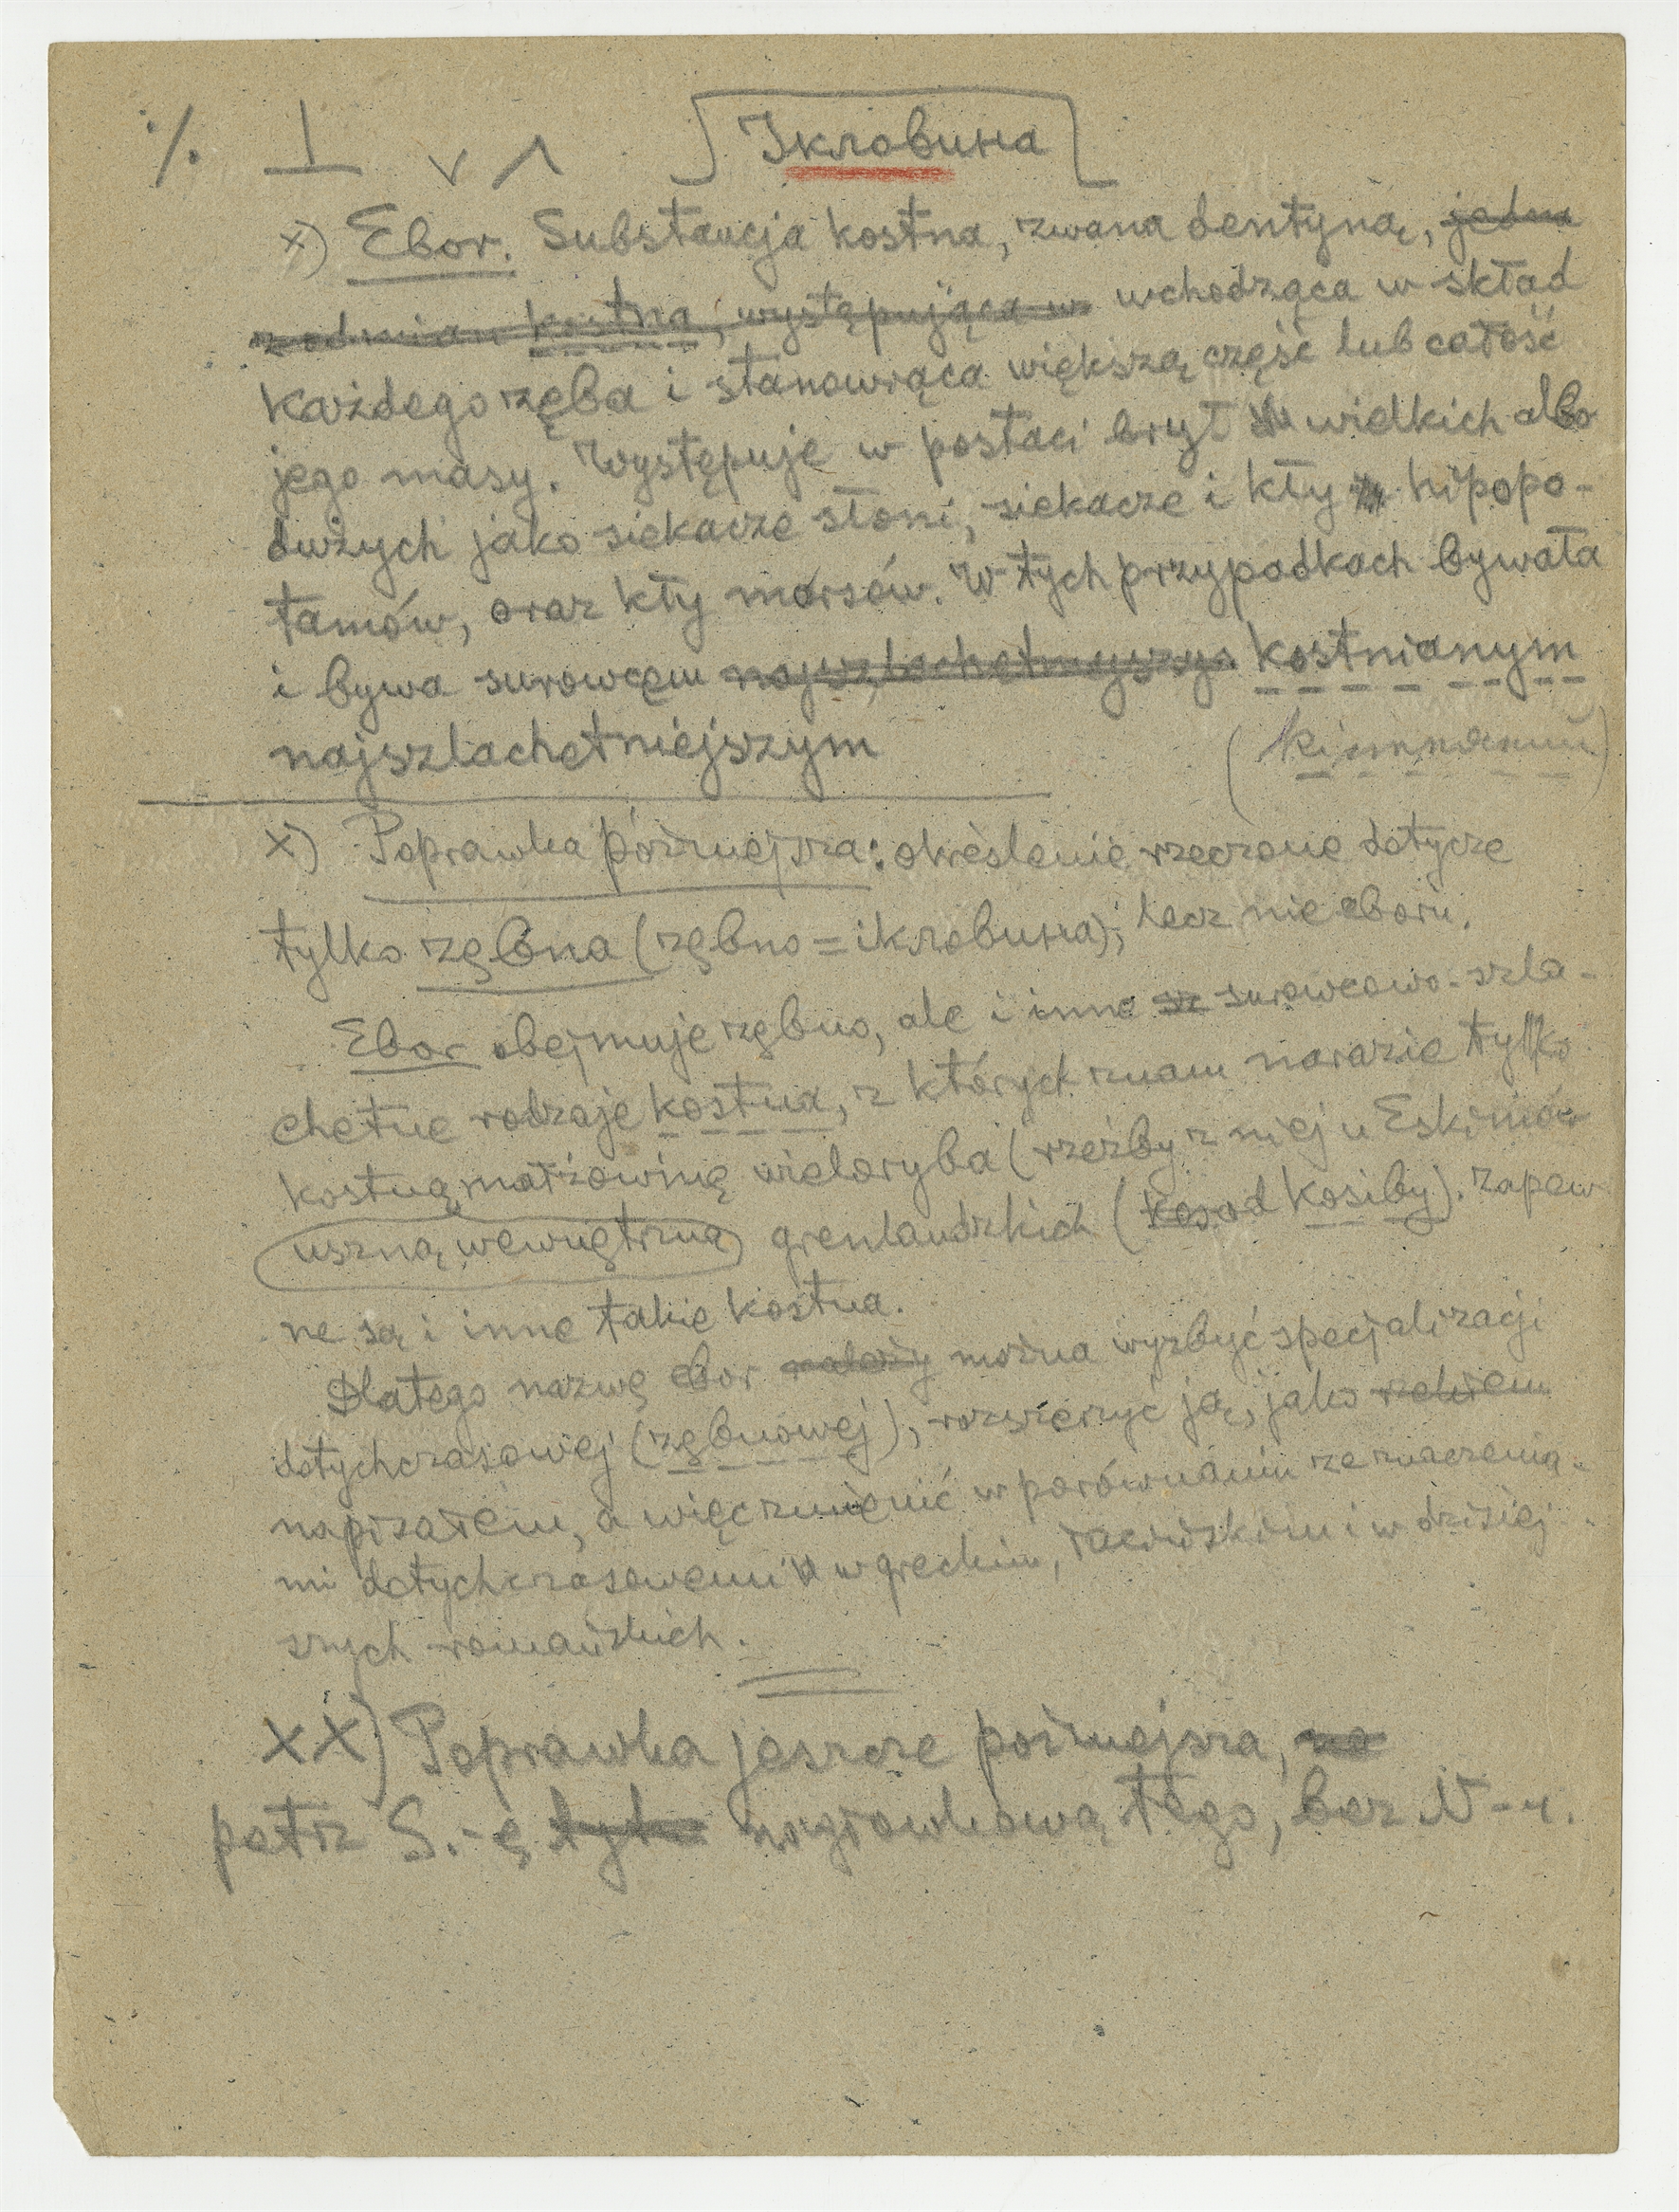 ⁒ ⊥ ∨ ∧ Iкловина
x) Ebor. Substancja kostna, zwana dentyną, jedna
z odmian kostna, występująca w wchodząca w skład
każdego zęba i stanowiąca większą część lub całość
jego masy. Występuje w postaci brył wielkich albo
dużych jako siekacze słoni, siekacze i kły hipopo-
tamów, oraz kły morsów. W tych przypadkach bywała
i bywa surowcem kostnianym
najszlachetniejszym
x) Poprawka późniejsza: określenie rzeczone dotycze
tylko zębna (zębno = iкловина); lecz nie eboru.
Ebor obejmuje zębno, ale i inne surowcowo-szla-
chetne rodzaje kostna, z których znam narazie tylko
kostną małżowinę wieloryba (rzeźby z niej u Eskimów
uszną wewnętrzną grenlandzkich (kos od kosiby). Zapew
ne są i inne takie kostna.
Dlatego nazwę ebor należy można wyzbyć specjalizacji
dotychczasowej (zębnowej), rozszerzyć ją, jako
napisałem, a więc zmienić w porównaniu ze znaczenia-
mi dotychczasowemi w greckim, łacińskim i w dzisiej-
szych romańskich.
xx) Poprawka jeszcze późniejsza, na
patrz S.-ę nagłówkową tego, bez N-r.